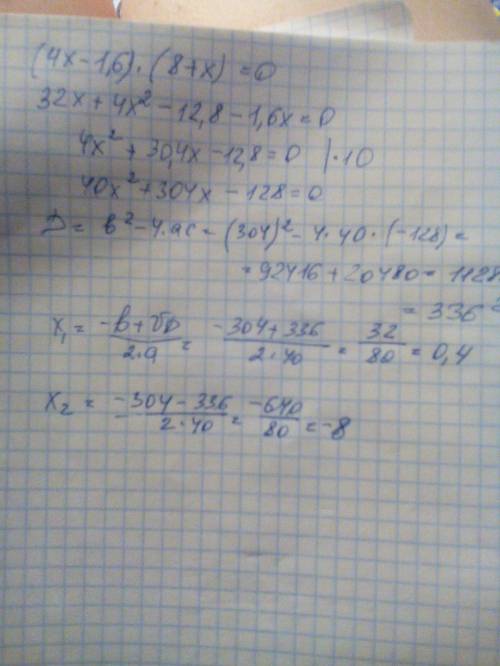 (4x-1,6)·(8+x)=0
32x+4x²-12,8-1,6x=0
4x²+30,4x-12,8=0 |·10
40x²+304x-128=0
D= b²-4·ac=(304)²-4·40·(-128)=
=92416+20480=1128
=336
x₁= (-b+√D)/(2·a) = (-304+336)/(2·40) = 32/80 = 0,4
x₂= (-304-336)/(2·40) = (-640)/80 = -8